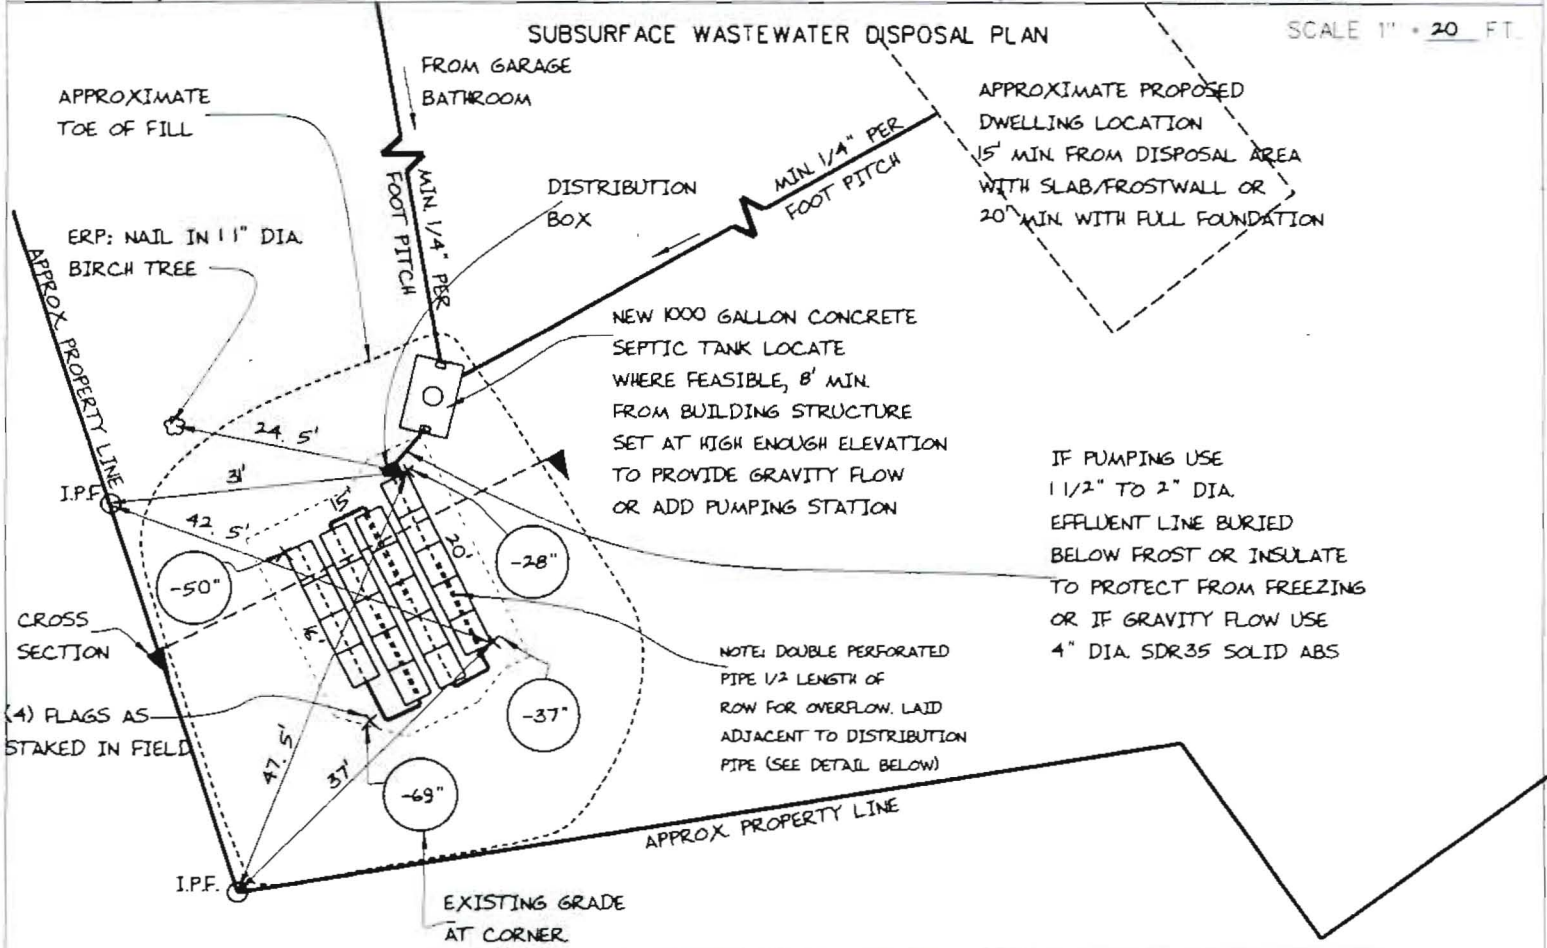 SUBSURFACE WASTEWATER DISPOSAL PLAN
SCALE 1" = 20 FT.
FROM GARAGE
BATHROOM
APPROXIMATE
TOE OF FILL
APPROXIMATE PROPOSED
DWELLING LOCATION
15' MIN. FROM DISPOSAL AREA
WITH SLAB/FROSTWALL OR
20' MIN. WITH FULL FOUNDATION
MIN. 1/4" PER
FOOT PITCH
MIN. 1/4" PER
FOOT PITCH
DISTRIBUTION
BOX
ERP: NAIL IN 11" DIA.
BIRCH TREE
APPROX. PROPERTY LINE
NEW 1000 GALLON CONCRETE
SEPTIC TANK LOCATE
WHERE FEASIBLE, 8' MIN.
FROM BUILDING STRUCTURE
SET AT HIGH ENOUGH ELEVATION
TO PROVIDE GRAVITY FLOW
OR ADD PUMPING STATION
24. 5'
31'
I.P.F.
42. 5'
15'
20'
-50"
-28"
IF PUMPING USE
1 1/2" TO 2" DIA.
EFFLUENT LINE BURIED
BELOW FROST OR INSULATE
TO PROTECT FROM FREEZING
OR IF GRAVITY FLOW USE
4" DIA. SDR35 SOLID ABS
CROSS
SECTION
NOTE: DOUBLE PERFORATED
PIPE 1/2 LENGTH OF
ROW FOR OVERFLOW. LAID
ADJACENT TO DISTRIBUTION
PIPE (SEE DETAIL BELOW)
(4) FLAGS AS
STAKED IN FIELD
-37"
47. 5'
37'
-69"
APPROX. PROPERTY LINE
I.P.F.
EXISTING GRADE
AT CORNER